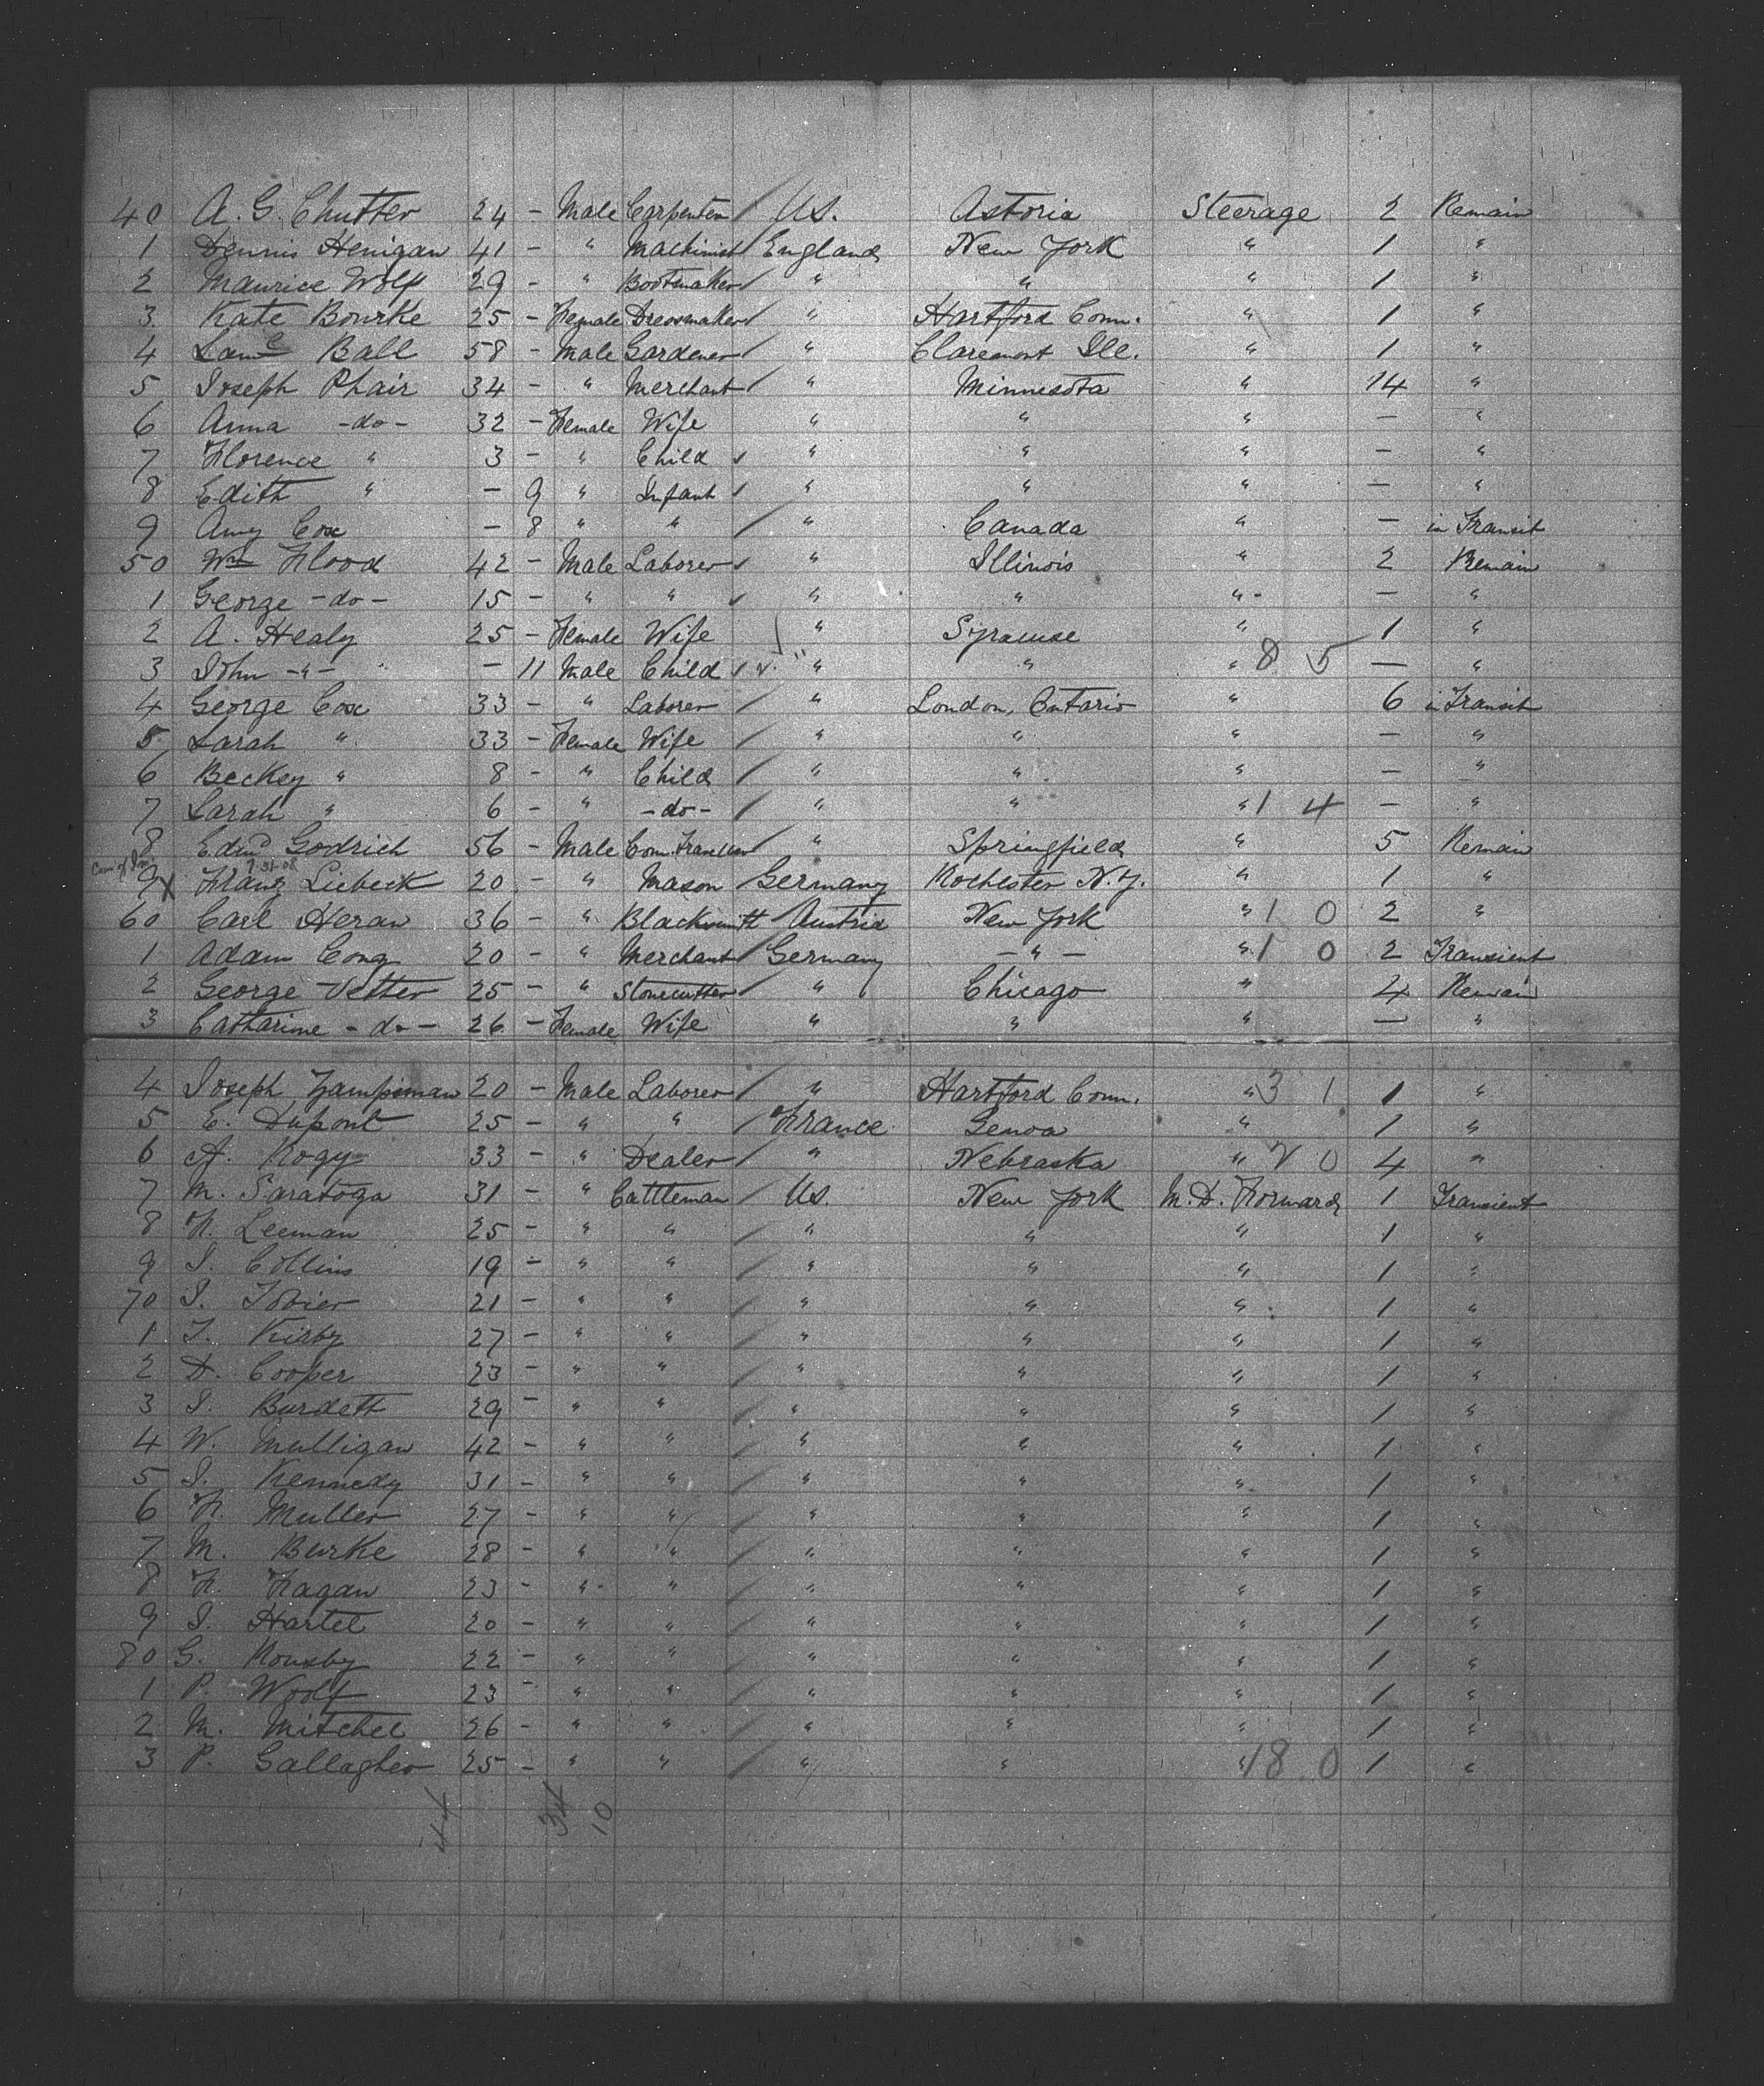 40 A. G. Chutter 24 - Male Carpenter / U.S. Astoria Steerage 2 Remain
1 Dennis Henigan 41 - " Machinist / England New York " 1 "
2 Maurice Wolf 29 - " Bootmaker / " " " 1 "
3 Kate Bourke 25 - Female Dressmaker / " Hartford Conn. " 1 "
4 Saml Ball 58 - Male Gardener / " Claremont Ill. " 1 "
5 Joseph Phair 34 - " Merchant / " Minnesota " 14 "
6 Anna -do- 32 - Female Wife " " " — "
7 Florence " 3 - " Child ✓ " " " — "
8 Edith " - 9 " Infant ✓ " " " — "
9 Amy Cox - 8 " " / " Canada " — in Transit
50 Wm Flood 42 - Male Laborer ✓ " Illinois " 2 Remain
1 George -do- 15 - " " ✓ " " " — "
2 A. Healy 25 - Female Wife " Syracuse " 1 "
3 John -"- - 11 Male Child ✓ " " " 8 5 — "
4 George Cox 33 - " Laborer / " London, Ontario " 6 in Transit
5 Sarah " 33 - Female Wife / " " " — "
6 Beckey " 8 - " Child / " " " — "
7 Sarah " 6 - " -do- / " " " 1 4 — "
8 Edmd Godrich 56 - Male Com. Traveller " Springfield " 5 Remain
7-31-08
9 X Franz Liebeck 20 - " Mason / Germany Rochester N.Y. " 1 "
60 Carl Heran 36 - " Blacksmith Austria New York " 1 0 2 "
1 Adam Cong 20 - " Merchant / Germany - " - " 1 0 2 Transient
2 George Vetter 25 - " Stonecutter / " Chicago " 4 Remain
3 Catharine -do- 26 - Female Wife " " " — "
4 Joseph 20 - Male Laborer / " Hartford Conn. " 3 1 1 "
5 E. Dupont 25 - " " / France Genoa " 1 "
6 A. Rogy 33 - " Dealer / " Nebraska " 2 0 4 "
7 M. Saratoga 31 - " Cattleman / U.S. New York M. D. Forward 1 Transient
8 F. Leeman 25 - " " / " " " 1 "
9 J. Collins 19 - " " / " " " 1 "
70 J. Tobier 21 - " " / " " " 1 "
1 T. Kirby 27 - " " / " " " 1 "
2 D. Cooper 23 - " " / " " " 1 "
3 J. Burdett 29 - " " / " " " 1 "
4 W. Mulligan 42 - " " / " " " 1 "
5 J. Kennedy 31 - " " / " " " 1 "
6 F. Muller 27 - " " / " " " 1 "
7 M. Burke 28 - " " / " " " 1 "
8 F. Fagan 23 - " " / " " " 1 "
9 J. Hartel 20 - " " / " " " 1 "
80 G. Rousby 22 - " " / " " " 1 "
1 P. Woolf 23 - " " / " " " 1 "
2 M. Mitchel 26 - " " / " " " 1 "
3 P. Gallagher 25 - " " / " " " 18 0 1 "
44 34 10